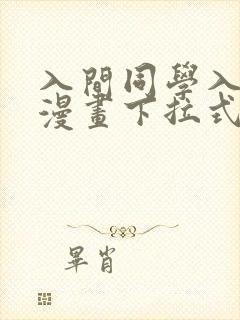 入間同學入
漫畫下拉式
畢肖